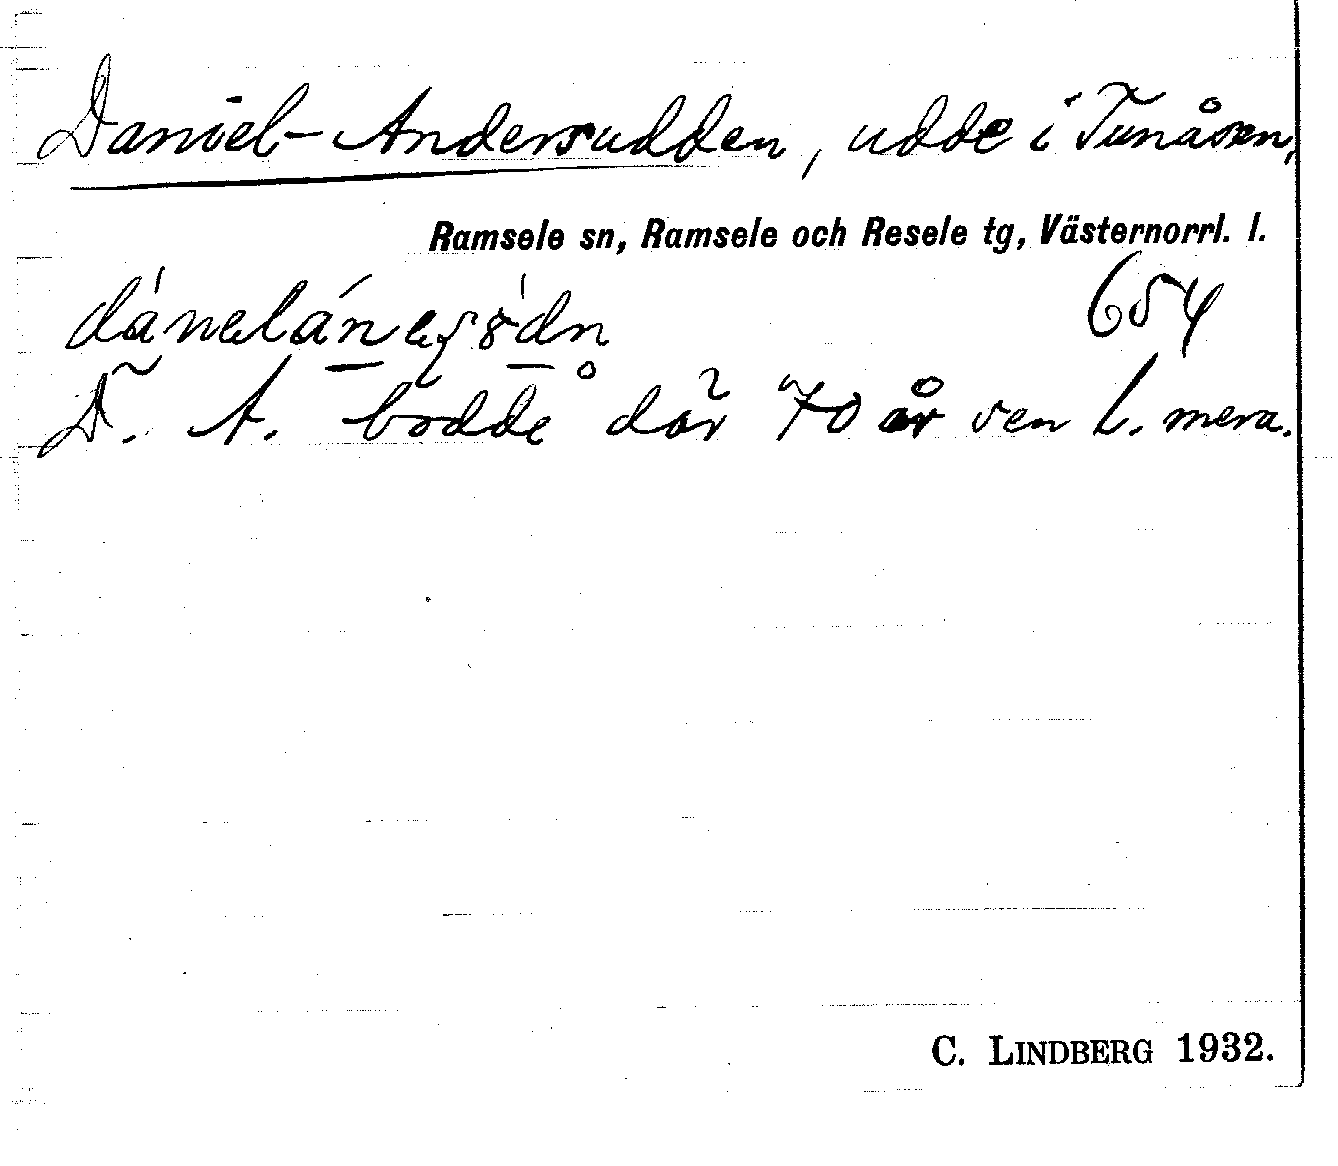 Daniel-Andersudden, udde i Tunåsen,
Ramsele sn, Ramsele och Resele tg, Västernorrl. l.
654
D. A. bodde där 70 år sen l. mera.
C. LINDBERG 1932.